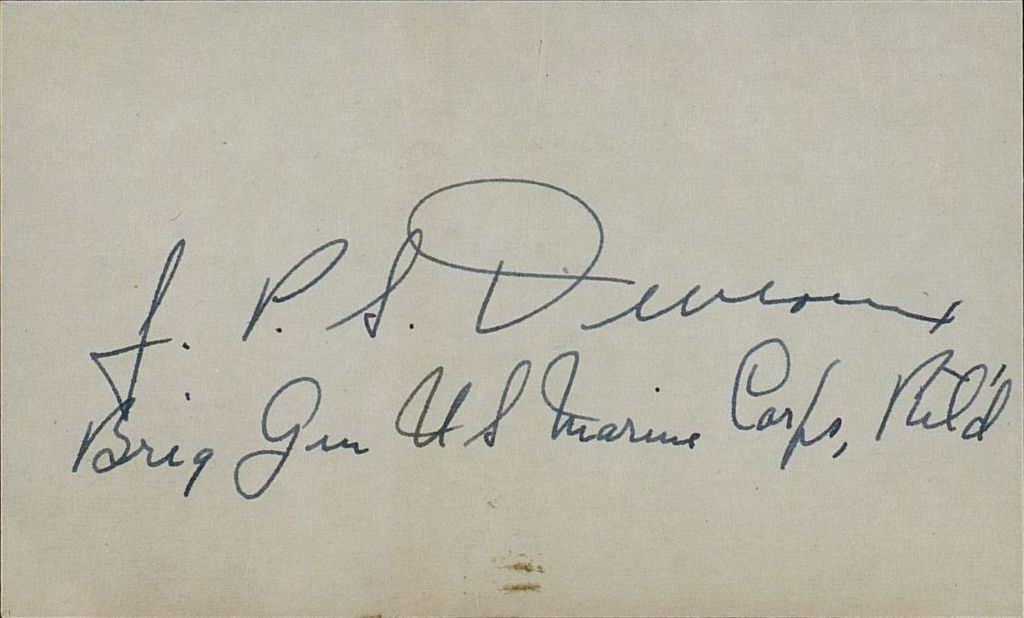 J. P. S. Devereux
Brig Gen US Marine Corps, Ret'd